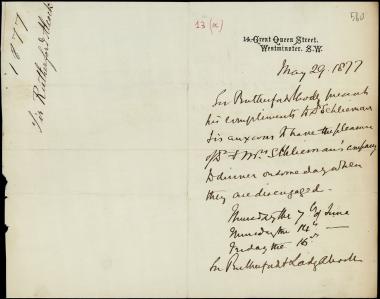 1877
Sir Rutherford Alcock
13 (a)
560
14, Great Queen Street,
Westminster, S.W.
May 29. 1877
Sir Rutherford Alcock presents
his compliments to Dr Schliemann
& is anxious to have the pleasure
of Dr & Mrs Schliemann's company
to dinner on some day when
they are disengaged.
Thursday the 7th of June
Thursday the 14th —
Friday the
Sir Rutherford & Lady Alcock